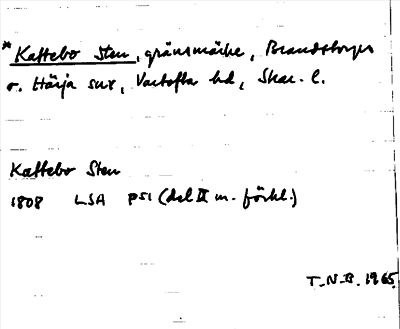 * Kattebo Sten, gränsmärke, Brandstorps
o. Härja snr, Vartofta hd, Skar. l.
Kattebo Sten
1808 LSA P51 (del II m. förkl.)
T.N.B. 1965